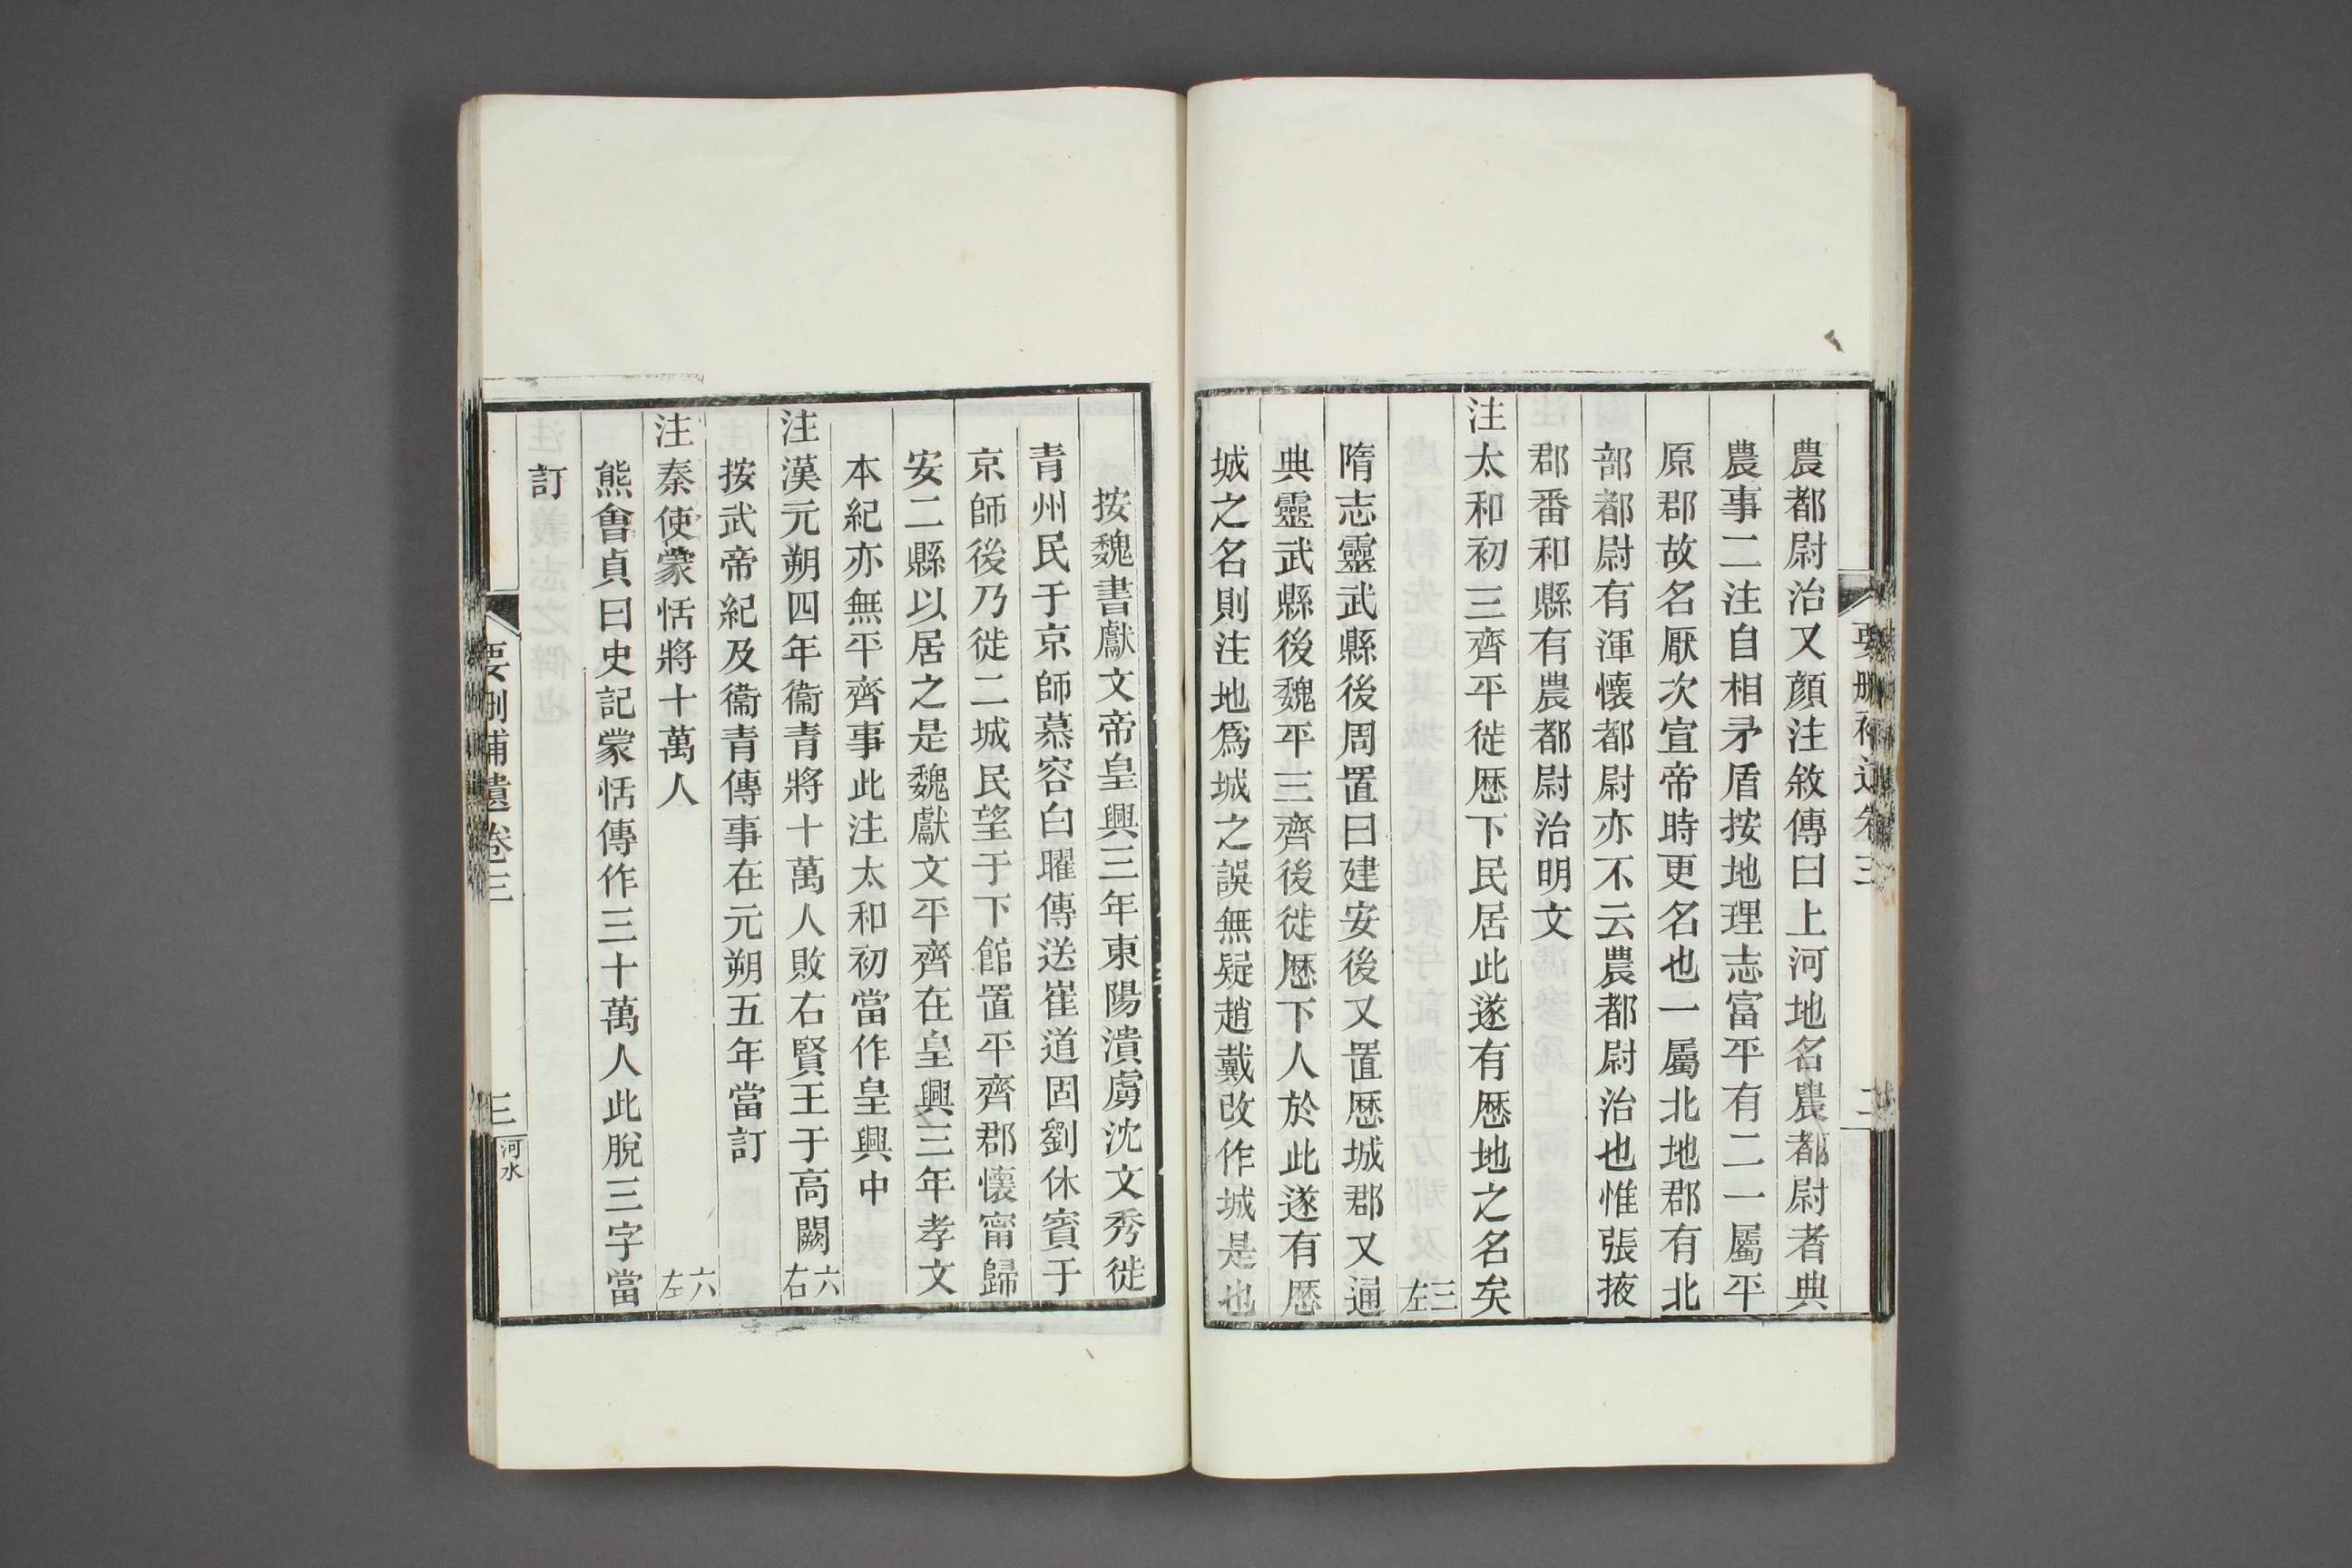 農都尉治又顏注敘傳曰上河地名農都尉者典
農事二注自相矛盾按地理志富平有二一屬平
原郡故名厭次宣帝時更名也一屬北地郡有北
部都尉有渾懷都尉亦不云農都尉治也惟張掖
郡番和縣有農都尉治明文
注太和初三齊平徙歷下民居此遂有歷地之名矣
三左
隋志靈武縣後周置曰建安後又置歷城郡又通
典靈武縣後魏平三齊後徙歷下人於此遂有歷
城之名則注地爲城之誤無疑趙戴改作城是也
按魏書獻文帝皇興三年東陽潰虜沈文秀徙
青州民于京師慕容白曜傳送崔道固劉休賓于
京師後乃徙二城民望于下館置平齊郡懷甯歸
安二縣以居之是魏獻文平齊在皇興三年孝文
本紀亦無平齊事此注太和初當作皇興中
注漢元朔四年衞青將十萬人敗右賢王于高闕六右
按武帝紀及衞青傳事在元朔五年當訂
注秦使蒙恬將十萬人六左
熊會貞曰史記蒙恬傳作三十萬人此脫三字當
訂
要刪補遺卷三
三
河水